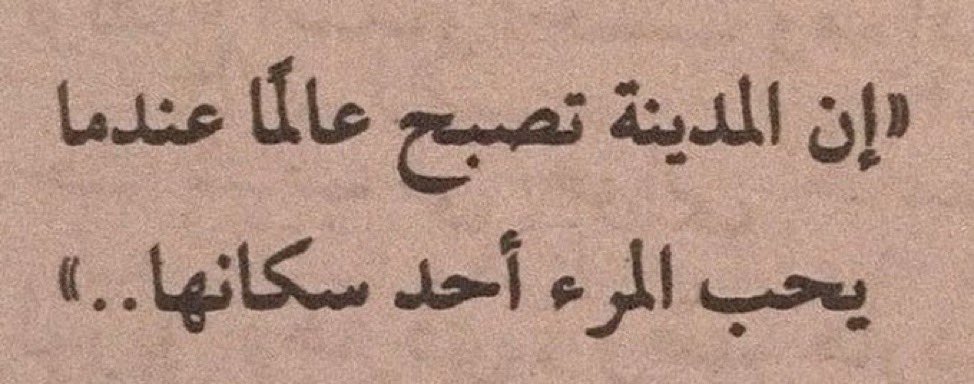 «إن المدينة تصبح عالمًا عندما
يحب المرء أحد سكانها..»